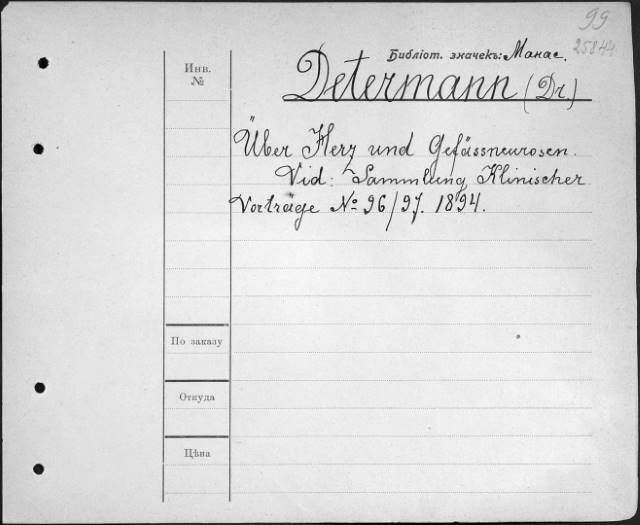 99
25844
Библіот. значекъ: Манас.
Инв.
№
Determann (Dr.)
Über Herz und Gefässneurosen.
Vid: Sammlung Klinischer
Vorträge № 96/97. 1894.
По заказу
Откуда
Цѣна